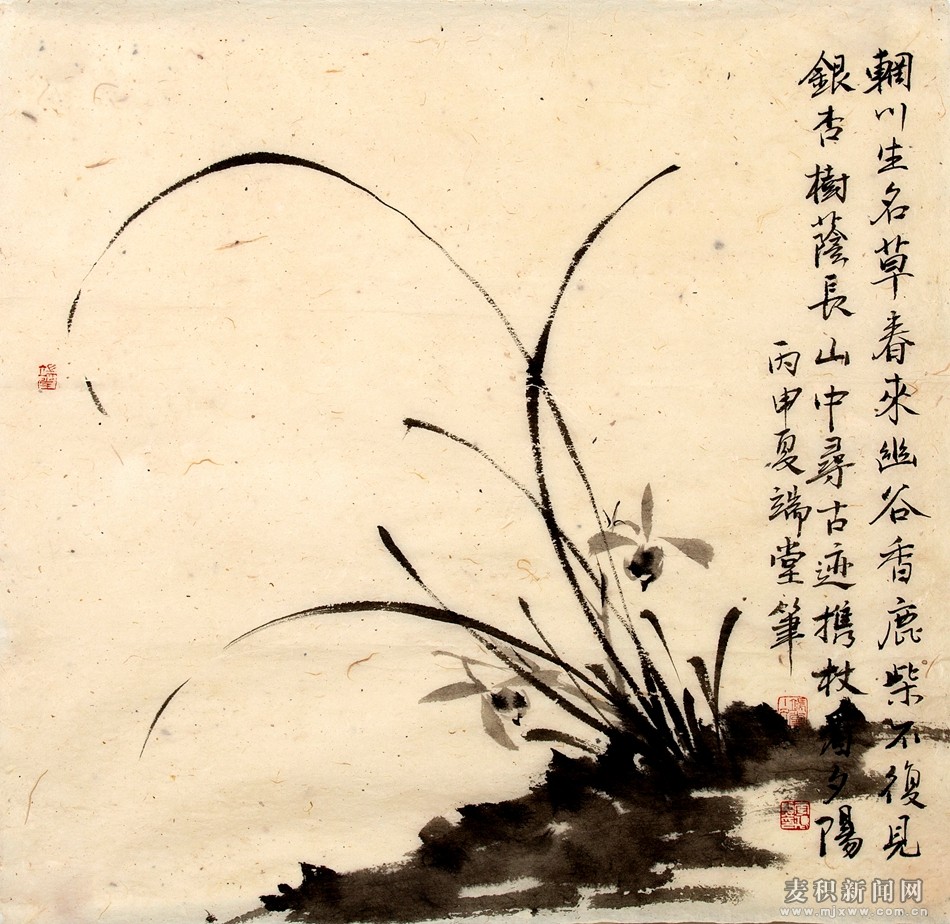 輞川生名草春來幽谷香鹿柴不復見
銀杏樹蔭長山中尋古迹携杖夕陽
丙申夏端堂筆
麦积新闻网
www.mjxww.com.cn